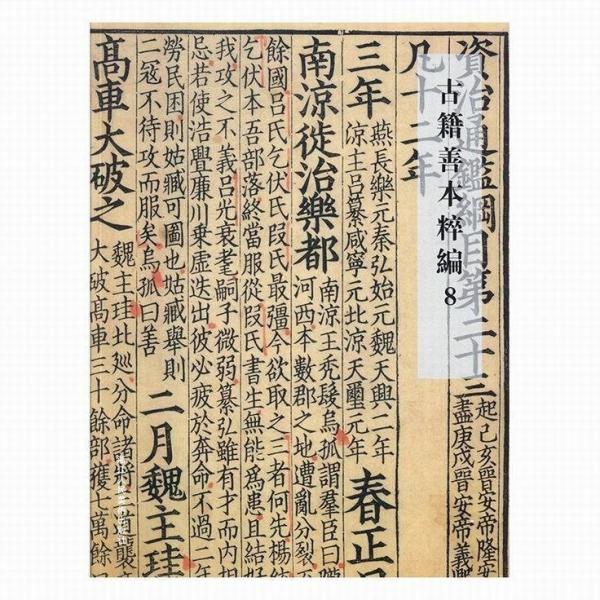 資治通鑑綱目第二十三
起己亥晉安帝隆安
盡庚戌晉安帝義熙
凡十二年
古籍善本粹編 8
三年
燕長樂元秦弘始元魏天興二年
涼王呂纂咸寧元北涼天璽元年
春正月
南涼徙治樂都
南涼王禿髮烏孤謂羣臣曰隴
河西本數郡之地遭亂分裂
餘國呂氏乞伏氏段氏最彊今欲取之三者何先楊統
乞伏本吾部落終當服從段氏書生無能爲患且結好
我攻之不義呂光衰耄嗣子微弱纂弘雖有才而内相
忌若使浩亹廉川乗虛迭出彼必疲於奔命不過二年
勞民困則姑臧可圖也姑臧舉則
二寇不待攻而服矣烏孤曰善
二月魏主珪
髙車大破之
魏主珪北廵分命諸將三道襲
大破髙車三十餘部獲七萬餘